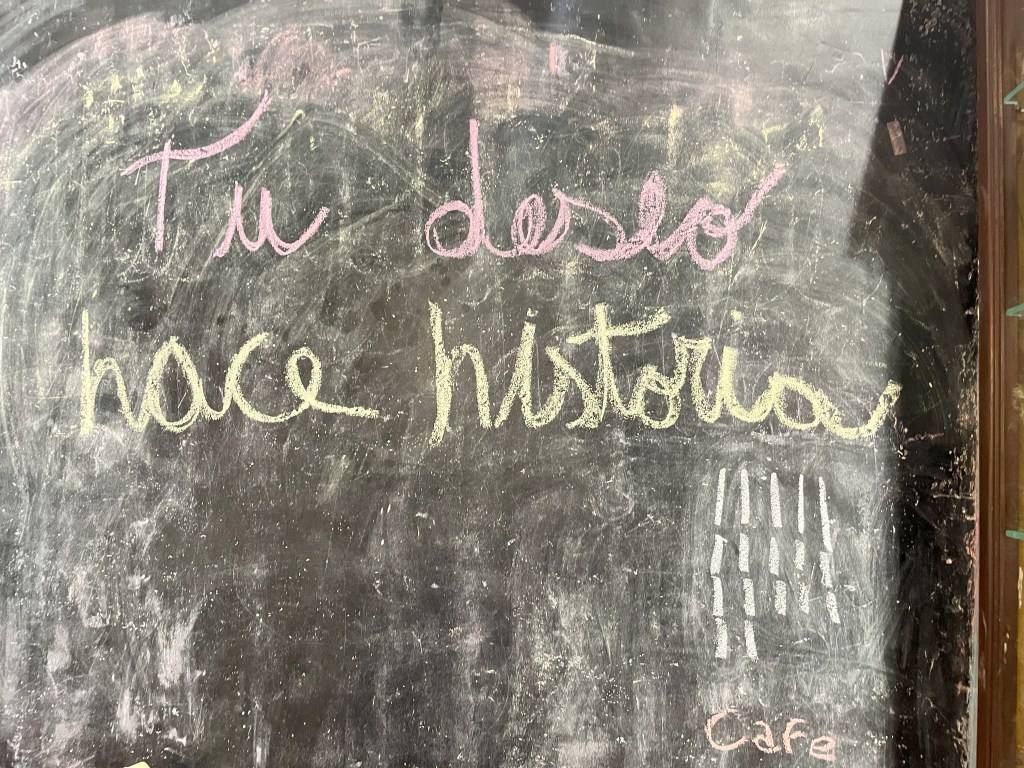 Tu deseo
hace historia
Cafe